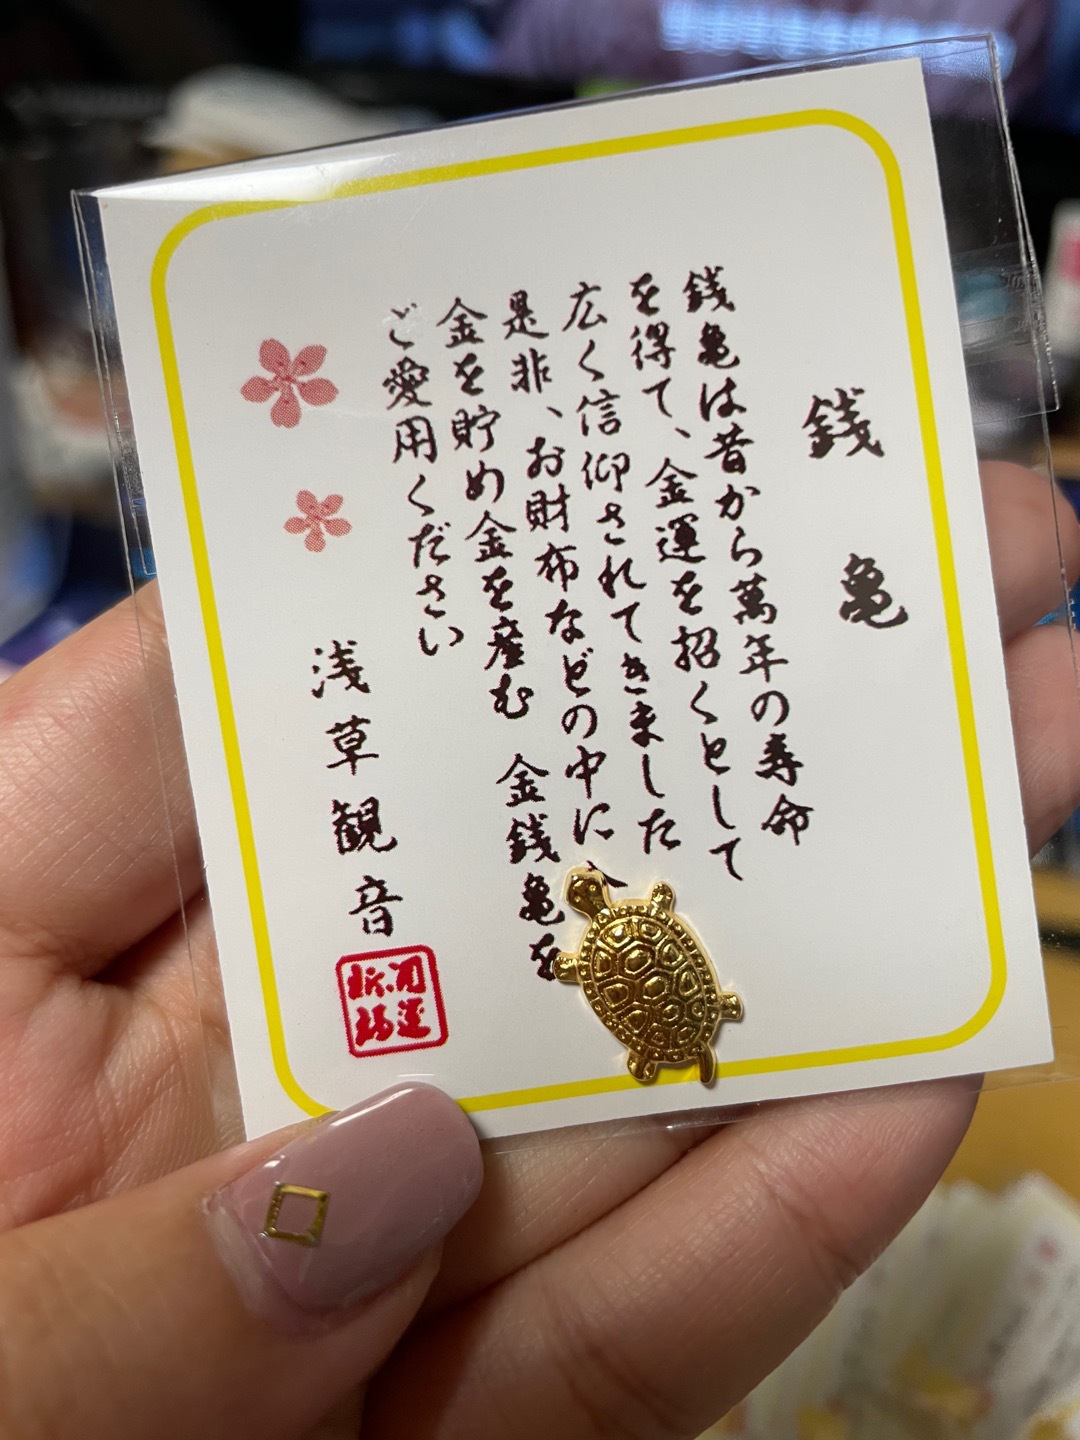 銭亀
銭亀は昔から萬年の寿命
を得て、金運を招くとして
広く信仰されてきました
是非、お財布などの中に
金を貯め金を産む 金銭亀を
ご愛用ください
浅草観音
開運
祈福